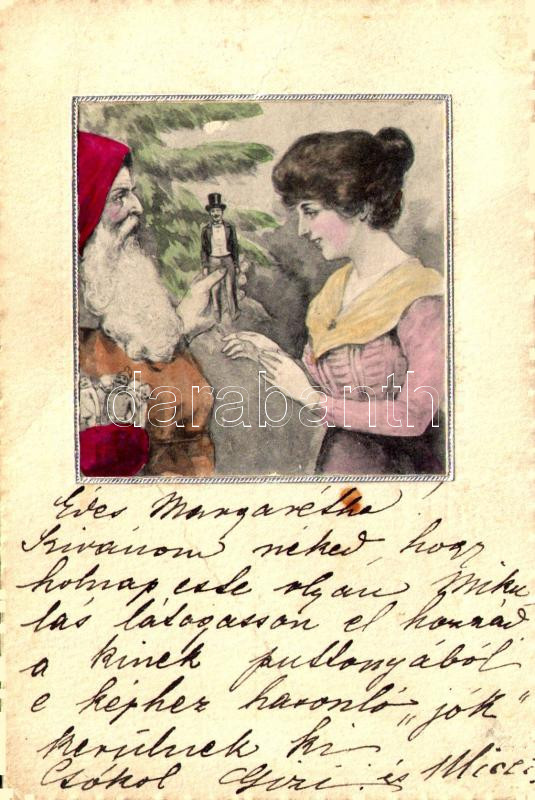 darabanth
Edes Margarétka!
Kivánom néked, hogy
holnap este olyan Miku
lás látogasson el hozzád
a kinek puttonyából
e képhez hasonló „jók"
kerülnek ki
Csókol Gizi és Micczi